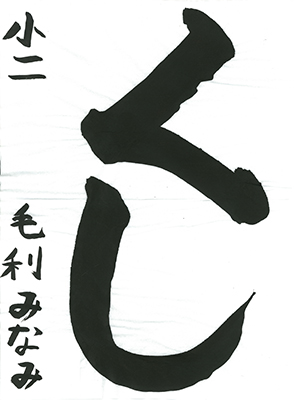 くし
小二 毛利みなみ